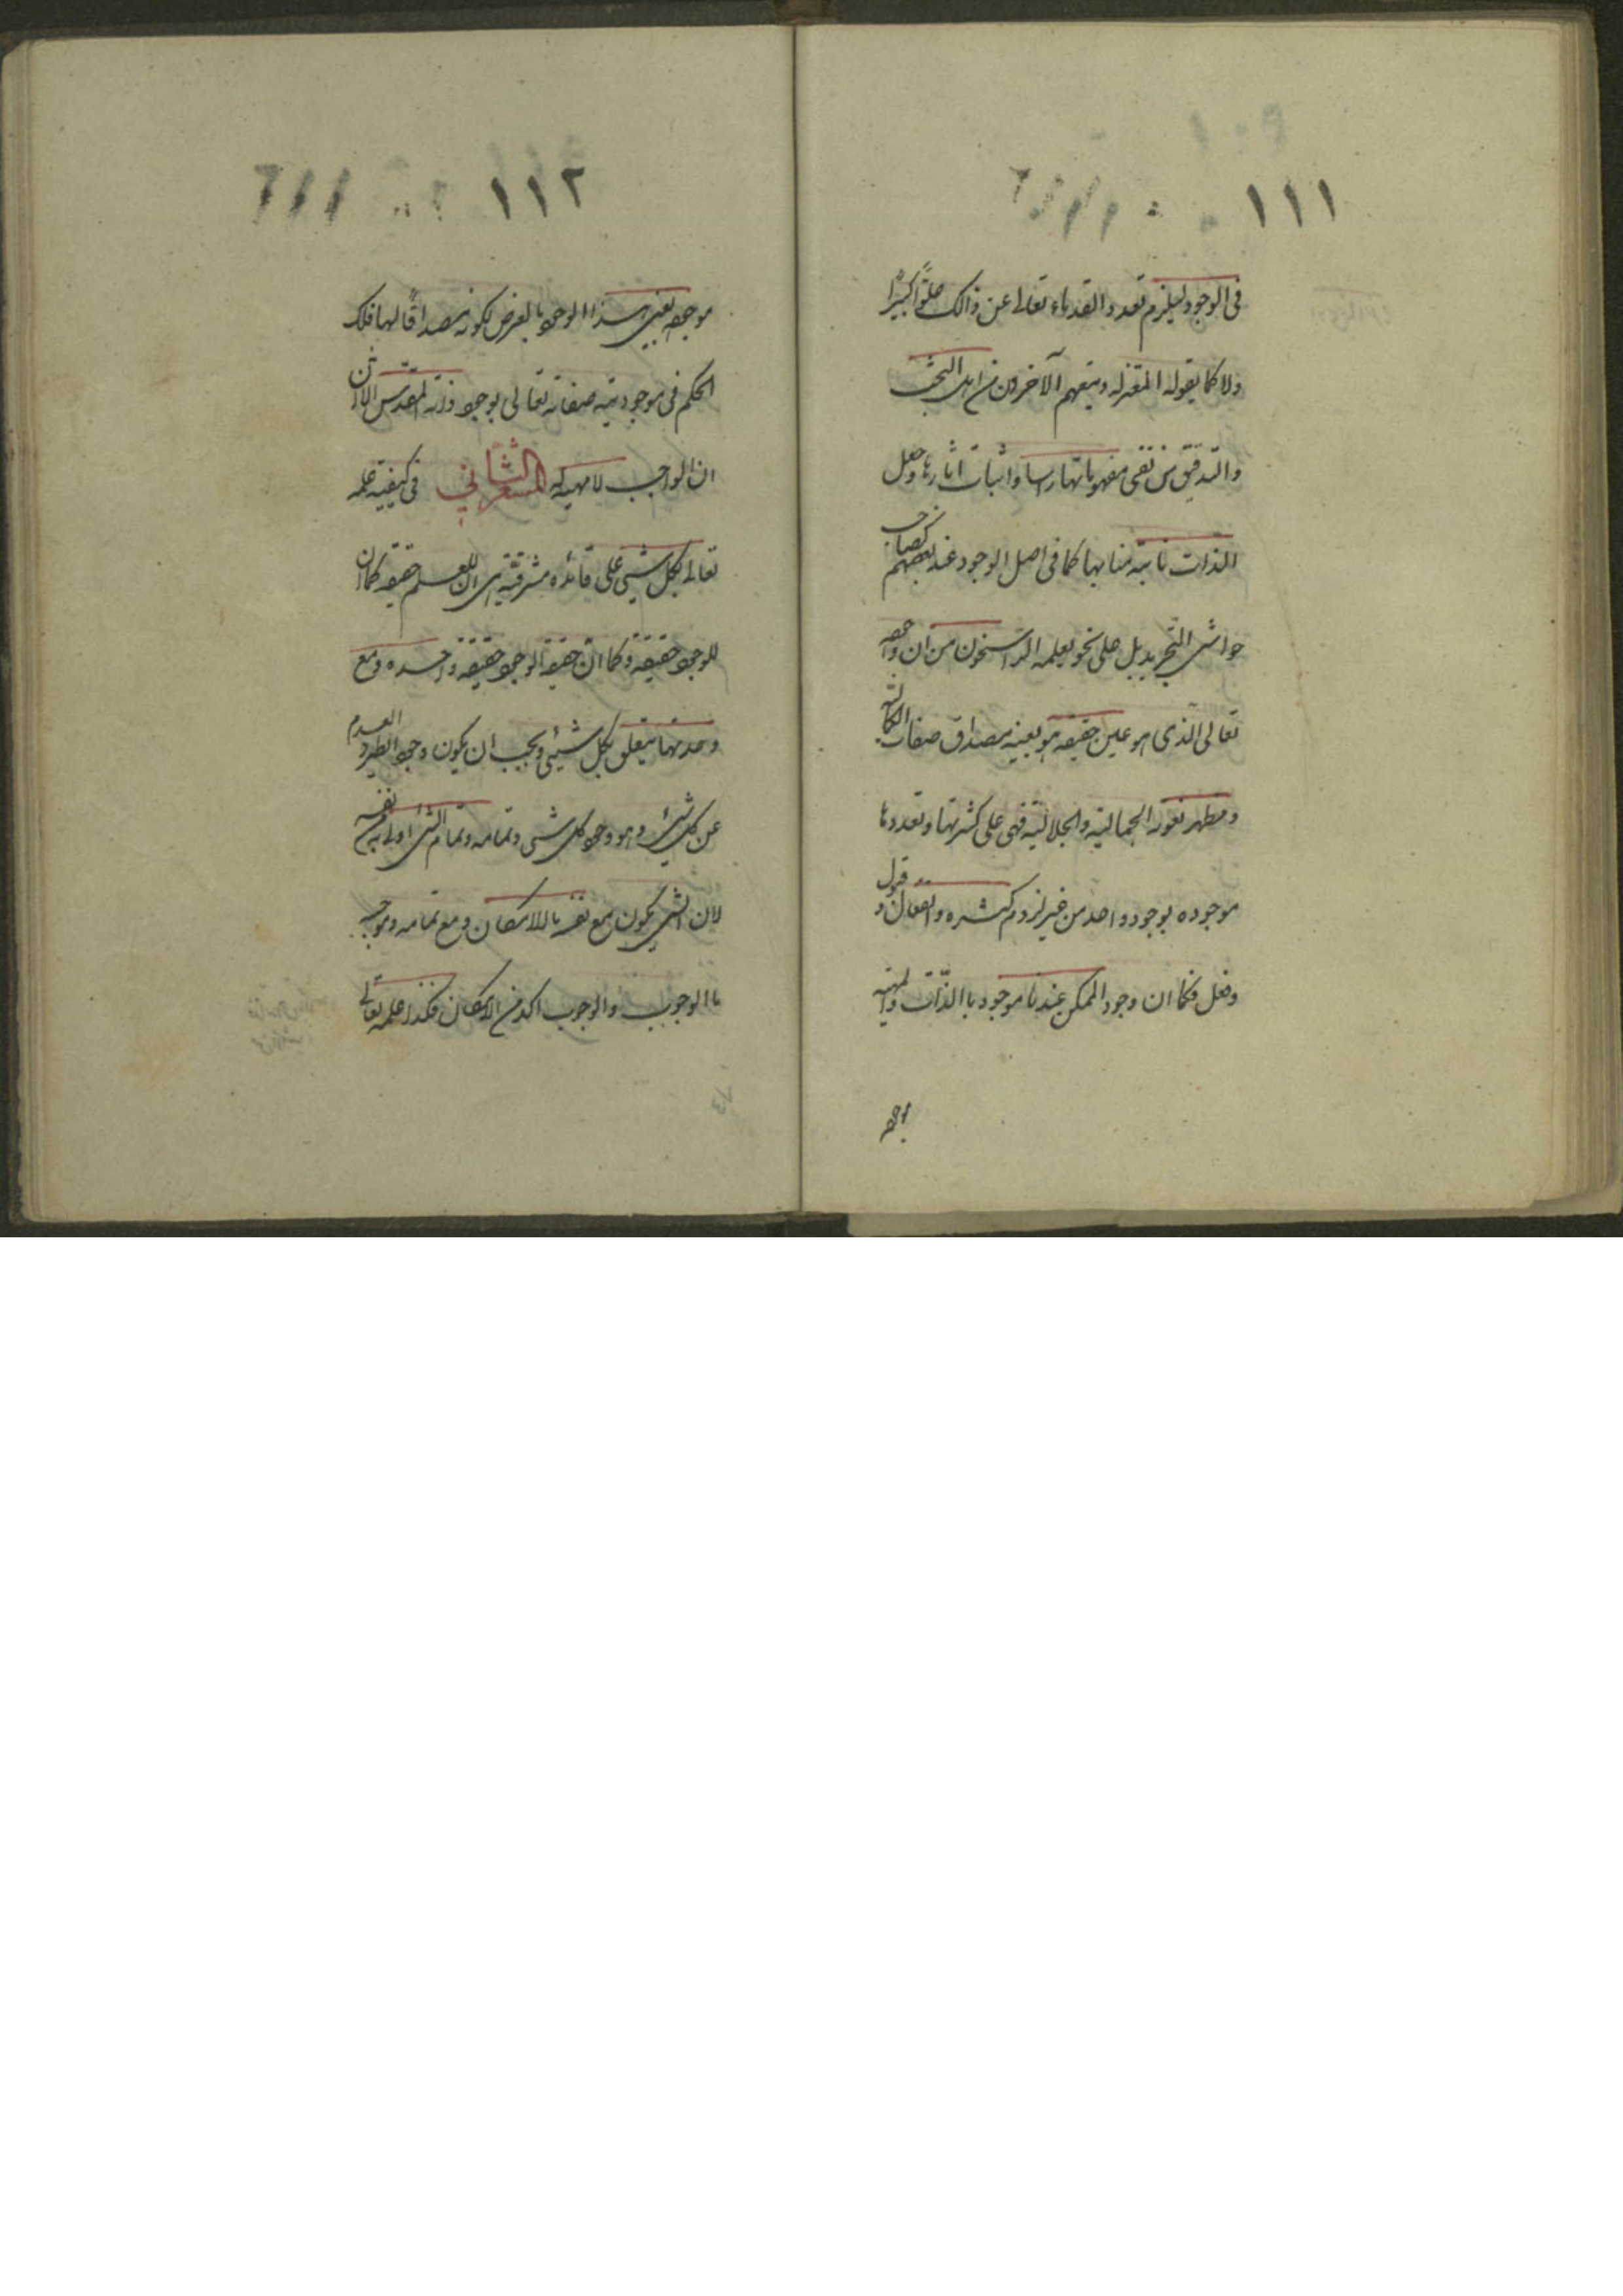 ١١١
فى الوجود ليلزم تعدد القدماء تعالى عن ذالك علوّاً كبيرًا
ولا كما يقوله المعتزله وتبعهم الآخرون من اهل البحث
والتدقيق من نفى مفهوماتها راسا واثبات اثارها وجعل
الذات نائبة منابها كما فى اصل الوجود عند بعضهم كصاحب
حواشى التجريد بل على نحو يعلمه الراسخون من ان وجوده
تعالى الذى هو عين حقيقه هو بعينه مصداق صفاته الكماليه
ومظهر نعوته الجماليّه والجلاليّه فهى على كثرتها وتعددها
موجوده بوجود واحد من غير لزوم كثره وانفعال وقبول
وفعل فكما ان وجود الممكن عندنا موجود باالذّات والمهيّه
موجوده
١١٢
موجوده بعين هذا الوجود بالعرض لكونه مصداقًا لها فكذلك
الحكم فى موجوديّه صفاته تعالى بوجود ذاته المقدّس الا انّ
ان الواجب لا مهيه له المشعر الثّانى فى كيفيّه علمه
تعالى بكل شيئى على قائده مشرقيّه هى ان للعلم حقيقه كما ان
للوجود حقيقه وكما انّ حقيقه الوجود حقيقه واحده ومع
وحدتها يتعلق بكل شيئى ويجب ان يكون وجودا يطرد العدم
عن كل شيئ وهو وجود كل شئى وتمامه وتمام الشئ اولى به من نفسه
لان الشئ يكون مع نفسه باالامكان ومع تمامه وموجبه
باالوجوب والوجوب اكد من الامكان فكذا علمه تعالى